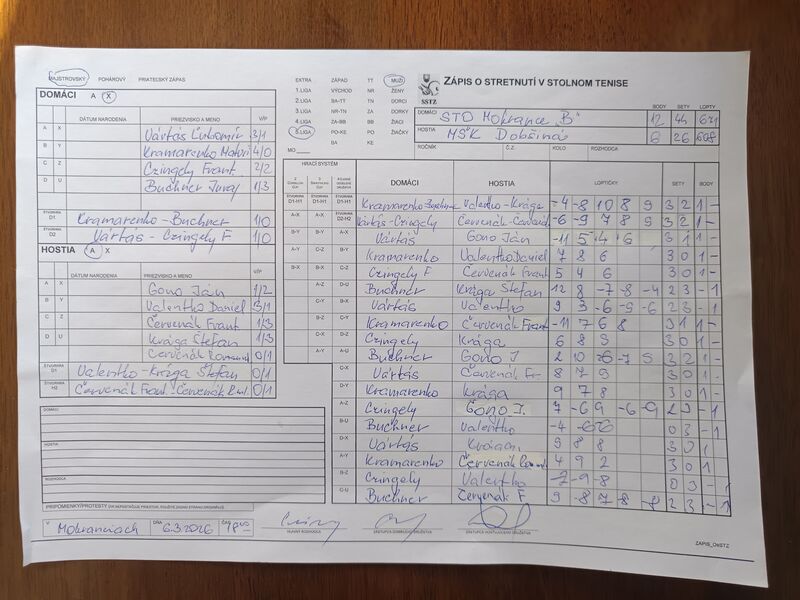 MAJSTROVSKÝ POHÁROVÝ PRIATEĽSKÝ ZÁPAS
DOMÁCI A X
DÁTUM NARODENIA PRIEZVISKO A MENO V/P
A X Vártás Ľubomír 3/1
B Y Kramarenko 4/0
C Z Czingely Frant. 2/2
D U Buchner Juraj 1/3
ŠTVORHRA D1 Kramarenko - Buchner 1/0
ŠTVORHRA D2 Vártás - Czingely F 1/0
HOSTIA A X
DÁTUM NARODENIA PRIEZVISKO A MENO V/P
A X Gono Ján 1/2
B Y Valentko Daniel 3/1
C Z Červenák Frant 1/3
D U Krága Štefan 1/3
Červenák 0/1
ŠTVORHRA Valentko - Krága Štefan 0/1
ŠTVORHRA Červenák Frant. - Červenák 0/1
DOMÁCI
HOSTIA
ROZHODCA
PRIPOMIENKY/PROTESTY
V Mokranciach DŇA 6.3.2026 ČAS 18 00
HLAVNÝ ROZHODCA
EXTRA ZÁPAD TT MUŽI
1.LIGA VÝCHOD NR ŽENY
2.LIGA BA-TT TN DORCI
3.LIGA NR-TN ZA DORKY
4.LIGA ZA-BB BB ŽIACI
5.LIGA PO-KE PO ŽIAČKY
BA KE
MO
SSTZ
ZÁPIS O STRETNUTÍ V STOLNOM TENISE
BODY SETY LOPTY
DOMÁCI STO Mokrance "B" 12 44 671
HOSTIA MŠK Dobšiná 6 26 608
ROČNÍK Č.Z. KOLO ROZHODCA
HRACÍ SYSTÉM DOMÁCI HOSTIA LOPTIČKY SETY BODY
D1-H1 D1-H1 D1-H1 Valentko - Krága -4 -8 10 8 9 3 2 1 -
A-X A-X D2-H2 Vártás - Czingely -6 -9 7 8 9 3 2 1 -
B-Y B-Y A-X Vártás Gono Ján 3 1 1 -
A-Y C-Z B-Y Kramarenko Valentko Daniel 7 8 6 3 0 1 -
B-X B-X C-Z Czingely F Červenák Frant 5 4 6 3 0 1 -
A-Z D-U Buchner Krága Štefan 12 8 -7 -8 -4 2 3 - 1
C-Y B-X Vártás Valentko 9 3 -6 -9 -6 2 3 - 1
B-Z C-Y Kramarenko Červenák Frant -11 7 6 8 3 1 1 -
C-X D-Z Czingely Krága 6 8 9 3 0 1 -
A-Y A-U Buchner Gono J 3 2 1 -
C-X Vártás Červenák Fr. 8 7 9 3 0 1 -
D-Y Kramarenko Krága 9 7 8 3 0 1 -
A-Z Czingely Gono J. 7 -6 9 -6 -9 2 3 - 1
B-U Buchner Valentko 0 3 - 1
D-X Vártás 9 8 8
A-Y Kramarenko Červenák 4 9 2 3 0 1 -
B-Z Czingely Valentko 0 3 - 1
C-U Buchner Červenák F 9 -8 7 -8 -8 2 3 - 1
ZÁPIS_OkSTZ